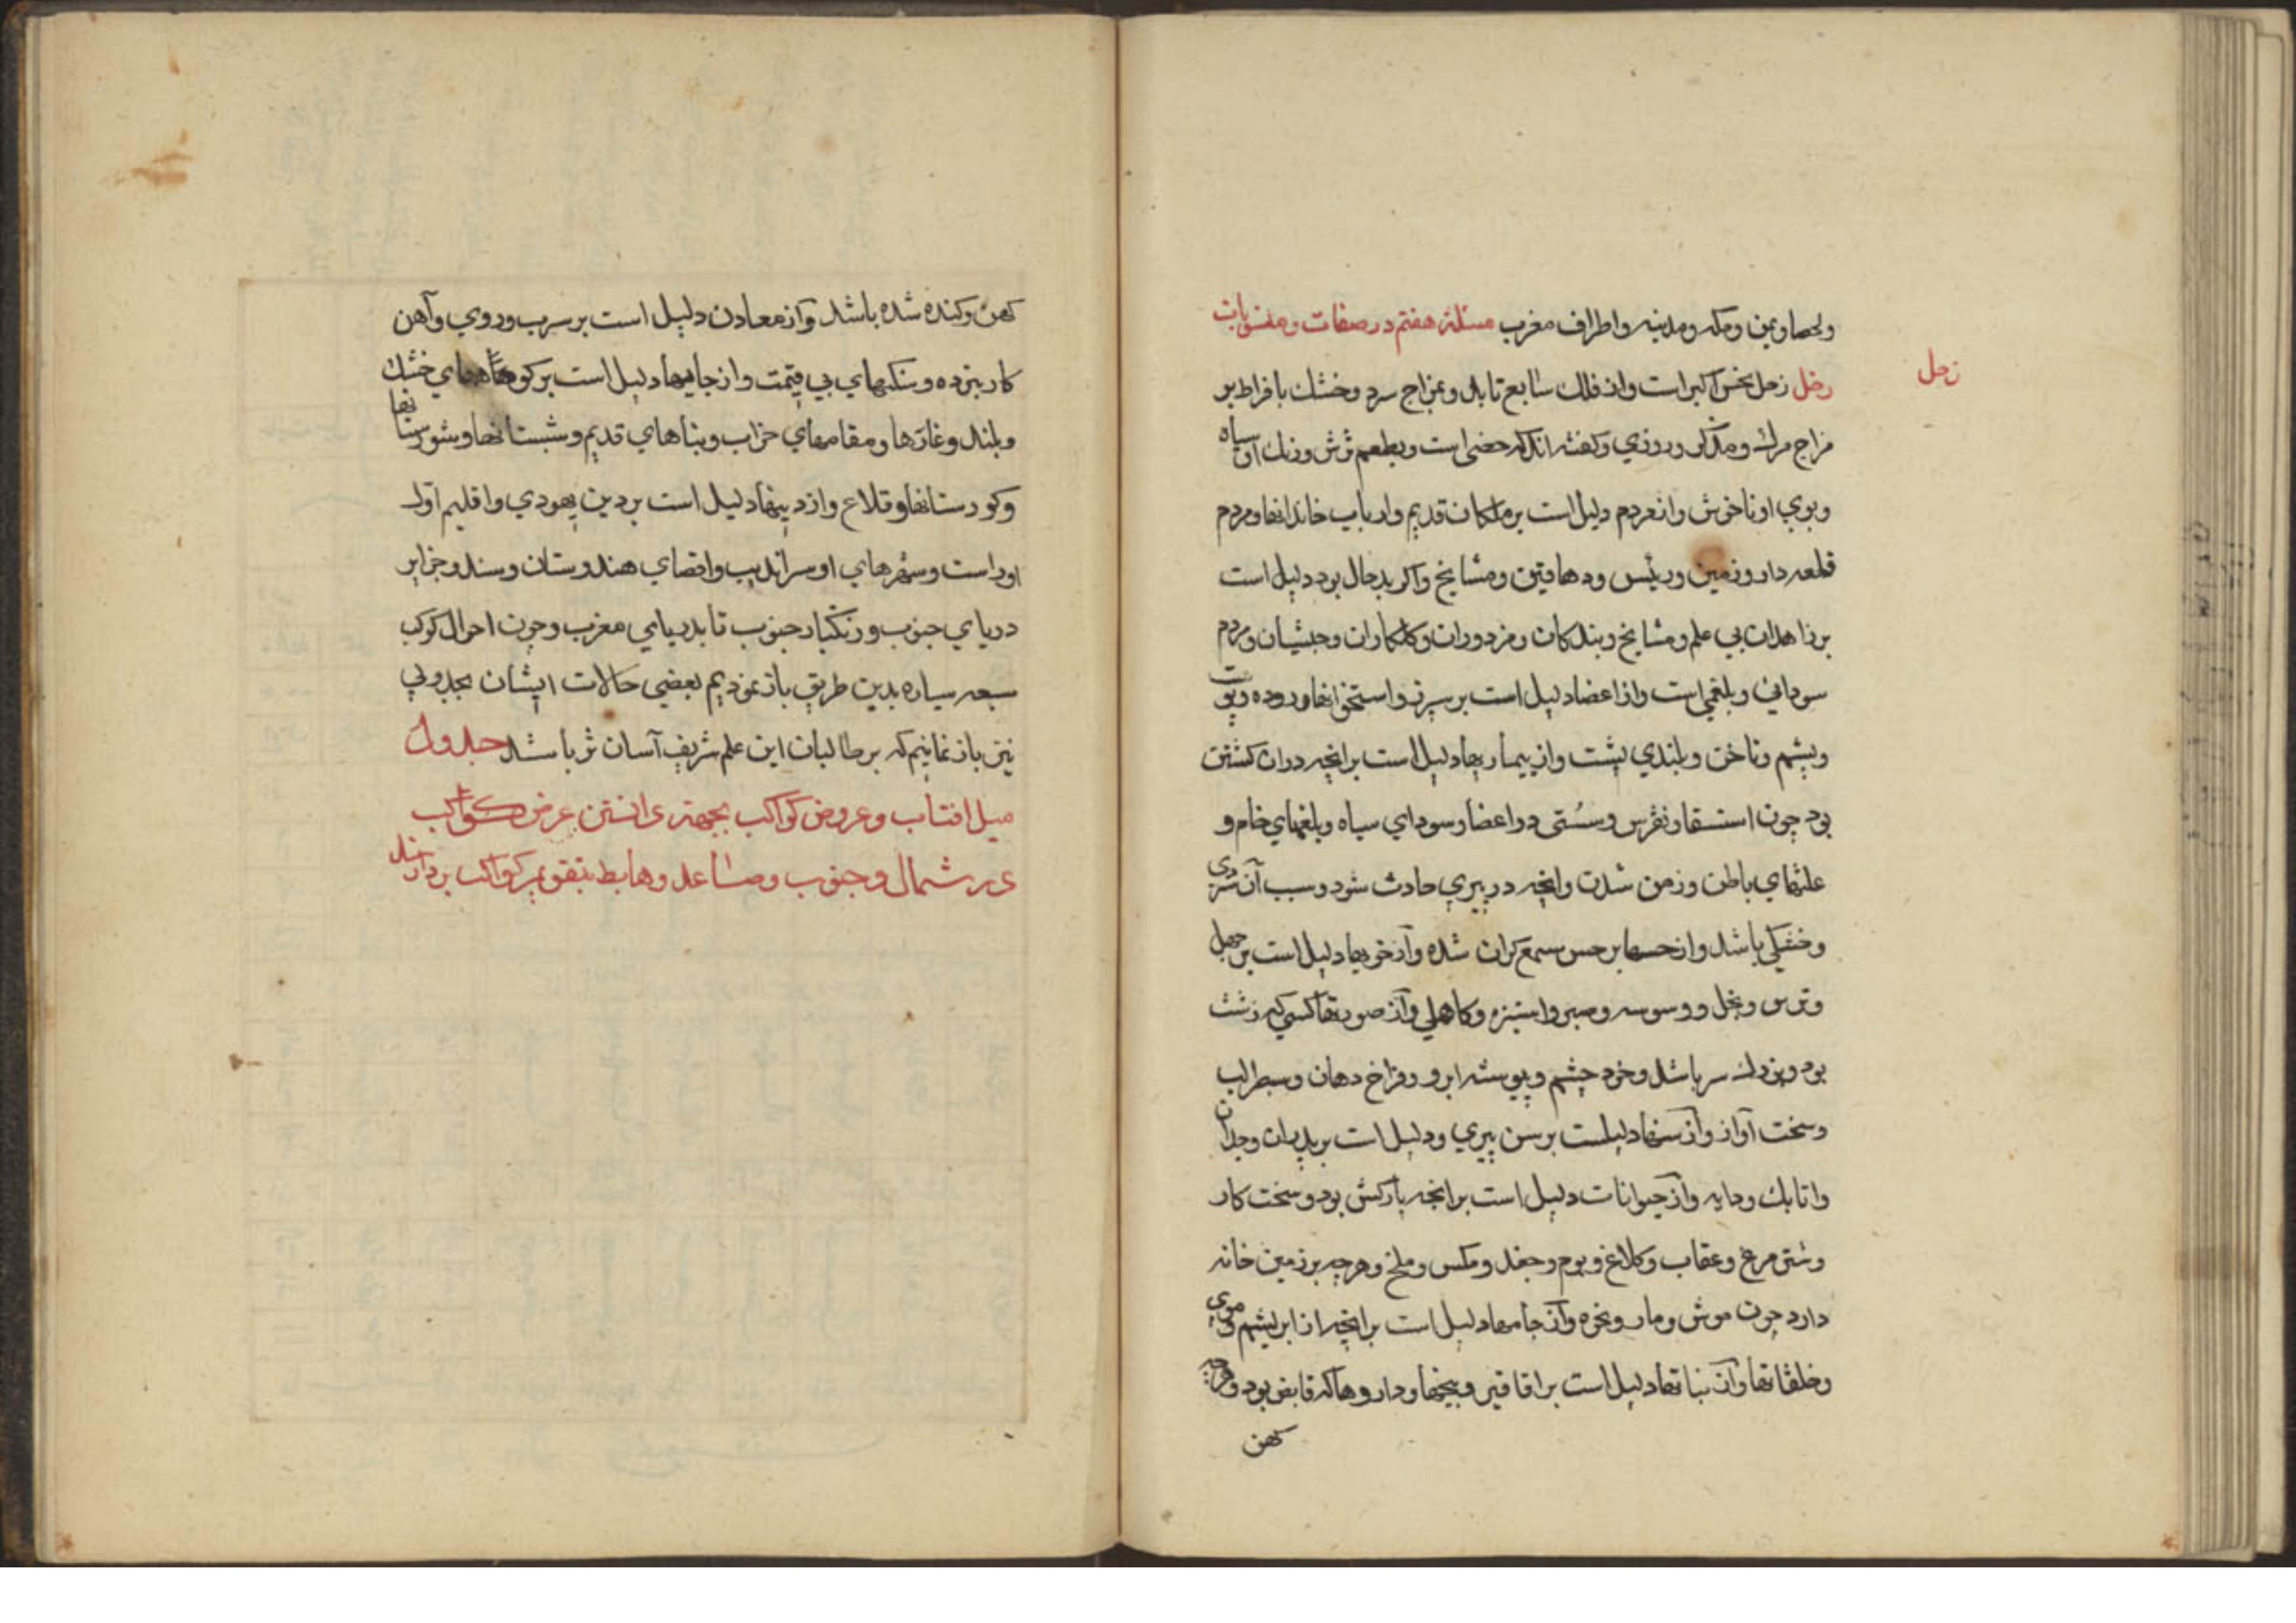 ولحصا ويمن ومكه ومدينه واطراف مغرب مسئلهٔ هفتم در صفات ومنسوبات
زحل
زحل زحل نحس اكبر است واز فلك سابع تابد وبمزاج سرد وخشك بافراط بر
مزاج مرك ومذكر وروزي وكفته اند كه خصى است وبطعم ترش ورنك او سياه
وبوي او ناخوش واز مردم دليل است بر ملكان قديم وارباب خاندانها ومردم
قلعه دار وزمين ورئيس ودهاقين ومشايخ واكر بدحال بود دليل است
بر زاهدان بي علم ومشايخ وبندكان ومزدوران وكلكاران وحبشيان ومردم
سودائي وبلغمي است واز اعضا دليل است بر سپرز واستخوانها وروده وپوست
وپشم وناخن وبلندي پشت واز بيماريها دليل است بر انچه دران كشتن
بود چون استسقا ونقرس وسُستى در اعضا وسوداي سياه وبلغمهاي خام و
علتهاي باطن وزمن شدن وانچه در پيري حادث شود وسبب آن سردى
وخشكي باشد واز حسها بر حس سمع كران شده واز خويها دليل است بر جهل
وترس وبخل ووسوسه وصبر واستيزه وكاهلي واز صورتها كسي كه زشت
بود وبزرك سر باشد وخرد چشم وپيوسته ابرو وفراخ دهان وسطبر لب
وسخت آواز واز سنها دليلست بر سن پيري ودليل است بر پدران وجدان
واتابك ودايه واز حيوانات دليل است بر انچه باركش بود وسخت كار
وشتر مرغ وعقاب وكلاغ وبوم وجغد ومكس وملخ وهرچه بر زمين خانه
دارد چون موش ومار وغره واز جامها دليل است بر انچه از ابريشم وموي
وخلقانها واز نباتها دليل است بر اقاقير وبيخها وداروها كه قابض بود وهرچه
كهن
كهن وكنده شده باشد واز معادن دليل است بر سرب وروي وآهن
كار بنزده وسنكهاي بي قيمت واز جايها دليل است بر كوههاي خشك
وبلند وغارها ومقامهاي خراب وبناهاي قديم وشبستانها وشورستانها
وكورستانها وقلاع واز دينها دليل است بر دين يهودي واقليم اول
اوراست وشهرهاي او سرانديب واقصاي هندوستان وسند وجزاير
درياي جنوب وزنكبار جنوب تا بدرياي مغرب وچون احوال كوكب
سبعه سياره بدين طريق باز نموديم بعضى حالات ايشان بجدولي
نيز باز نمائيم كه بر طالبان اين علم شريف آسان تر باشد جدول
ميل افتاب وعروض كواكب بجهة دانستن عرض كواكب
در شمال وجنوب وصاعد وهابط بتقويم كواكب بردارند